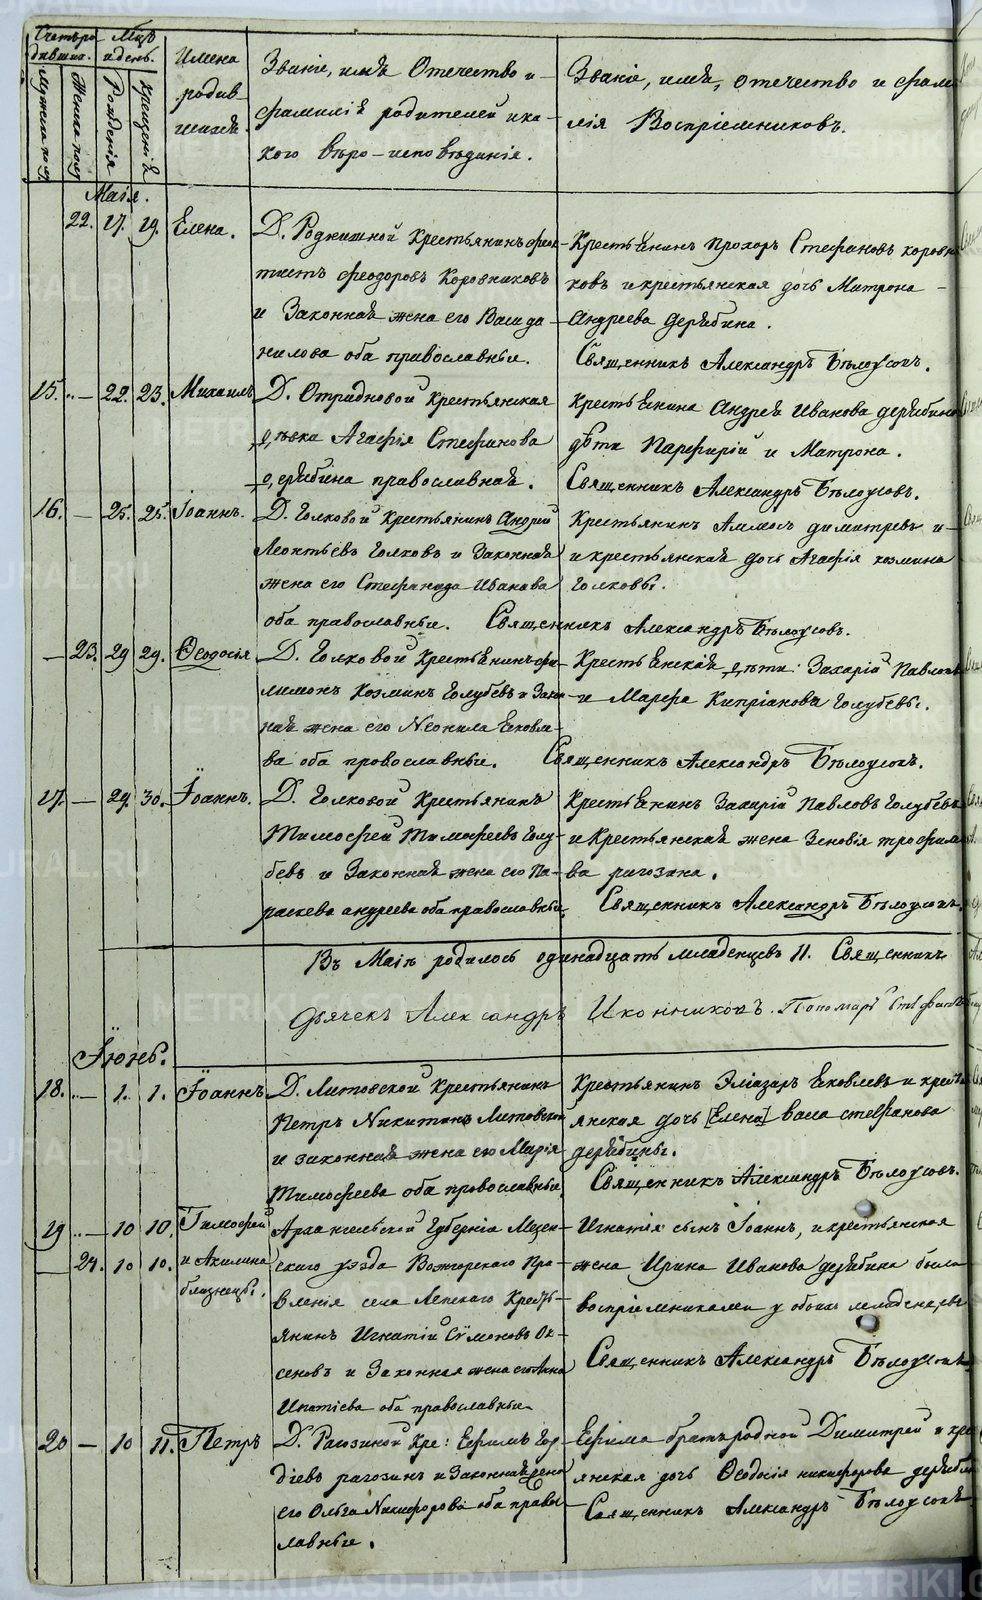 Имена родив-шихся.
Званіе, имѧ, Отечество и
фамилія родителей и ка-
кого вѣро-исповѣданія.
Званіе, имѧ, отечество и фами-
лія Воспріемниковъ.
Маія.
22. 17. 19. Елена.
Д. Роднишной Крестьянинъ
Феодоровъ Коровниковъ
и Законная жена его Васса Да-
нилова оба православные.
Крестьянинъ Прохоръ Стефановъ Коровни-
ковъ и крестьянская дочь Матрона
Андреева Дерябина.
Священникъ Александръ Бѣлоусовъ.
15. — 22. 23. Михаилъ
Д. Отрадновой крестьянская
дѣвка Агафія Стефанова
Дерябина православная.
Крестьянина Андрея Иванова Дерябина
дѣти Парфирій и Матрона.
Священникъ Александръ Бѣлоусовъ.
16. — 25. 25. Іоаннъ.
Д. Голковой Крестьянинъ Андрей
Леонтьевъ Голковъ и Законная
жена его Стефанида Иванова
оба православные.
Крестьянинъ Амосъ Димитревъ и
и крестьянская дочь Агафія Козмина
Голковы.
Священникъ Александръ Бѣлоусовъ.
— 23. 29 29. Ѳеодосія
Д. Голковой Крестьянинъ Фи-
лимонъ Козминъ Голубевъ и Закон-
ная жена его Неонила Яковле-
ва оба православные.
Крестьянскія дѣти: Захарій Павловъ
и Марфа Кипріанова Голубевы.
Священникъ Александръ Бѣлоусовъ.
17. — 29. 30. Іоаннъ.
Д. Голковой Крестьянинъ
Тимофей Тимофеевъ Голу-
бевъ и Законная жена его Па-
раскева Андреева оба православные.
Крестьянинъ Захарій Павловъ Голубевъ
и Крестьянская жена Зеновія Трофимо-
ва Рагозина.
Священникъ Александръ Бѣлоусовъ.
Въ Маіѣ родилось одинадцать младенцевъ 11. Священникъ
Дьячекъ Александръ Иконниковъ. Пономарь
Іюнь.
18. — 1. 1. Іоаннъ
Д. Литовской Крестьянинъ
Петръ Никитинъ Литовской
и законная жена его Марія
Тимофеева оба православные.
Крестьянинъ Эліазаръ Яковлевъ и кресть-
янская дочь [Елена] Васса Стефанова
Дерябины.
Священникъ Александръ Бѣлоусовъ.
19 — 10 10. Тимофей
— 24. 10 10. и Акилина
близнецы.
Архангельской Губерніи Мезен-
скаго уѣзда Вожгорскаго Пра-
вленія села Лепскаго Кресть-
янинъ Игнатій Сѵмоновъ Ак-
сеновъ и Законная жена его Анна
Ипатіева оба православные.
Игнатія сынъ Іоаннъ, и крестьянская
жена Ирина Иванова Дерябина были
воспріемниками у обоихъ младенцевъ
Священникъ Александръ Бѣлоусовъ
20 — 10 11. Петръ
Д. Рагозиной Кре: Ефимъ Гор-
діевъ Рагозинъ и Законная жена
его Ольга Никифорова оба право-
славные.
Ефима братъ родной Димитрей и кре-
янская дочь Ѳеодосія Никифорова Деряби-
Священникъ Александръ Бѣлоусовъ
METRIKI.GASO-URAL.RU